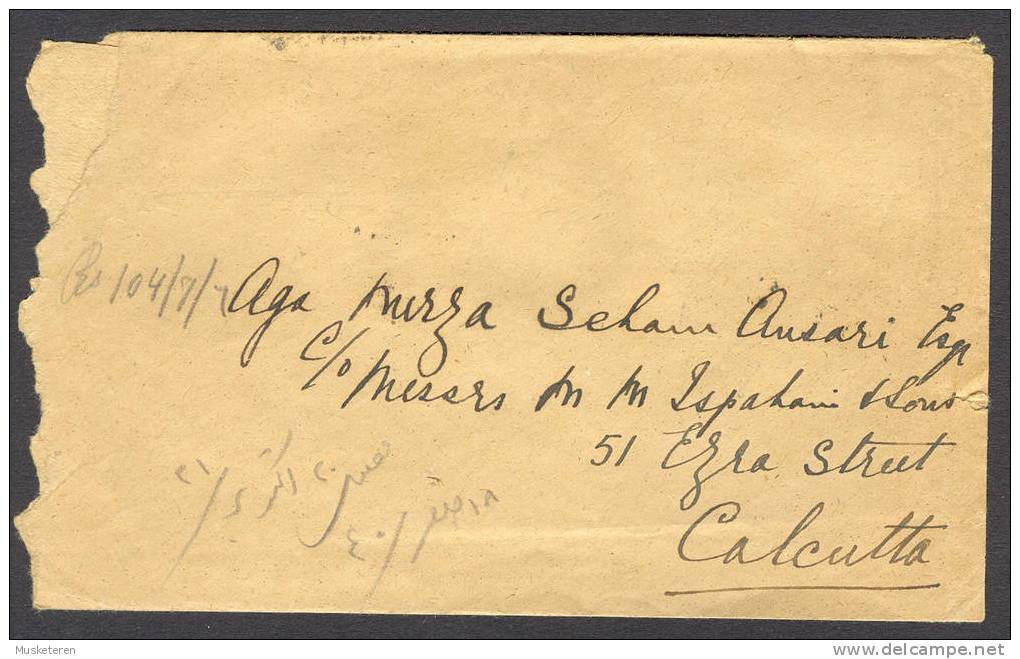 Rs 104/7/
Aga Mirza Seham Ansari Esqr
C/o Messrs M M Ispahani & Sons
51 Ezra Street
Calcutta
Musketeren
www.delcampe.net